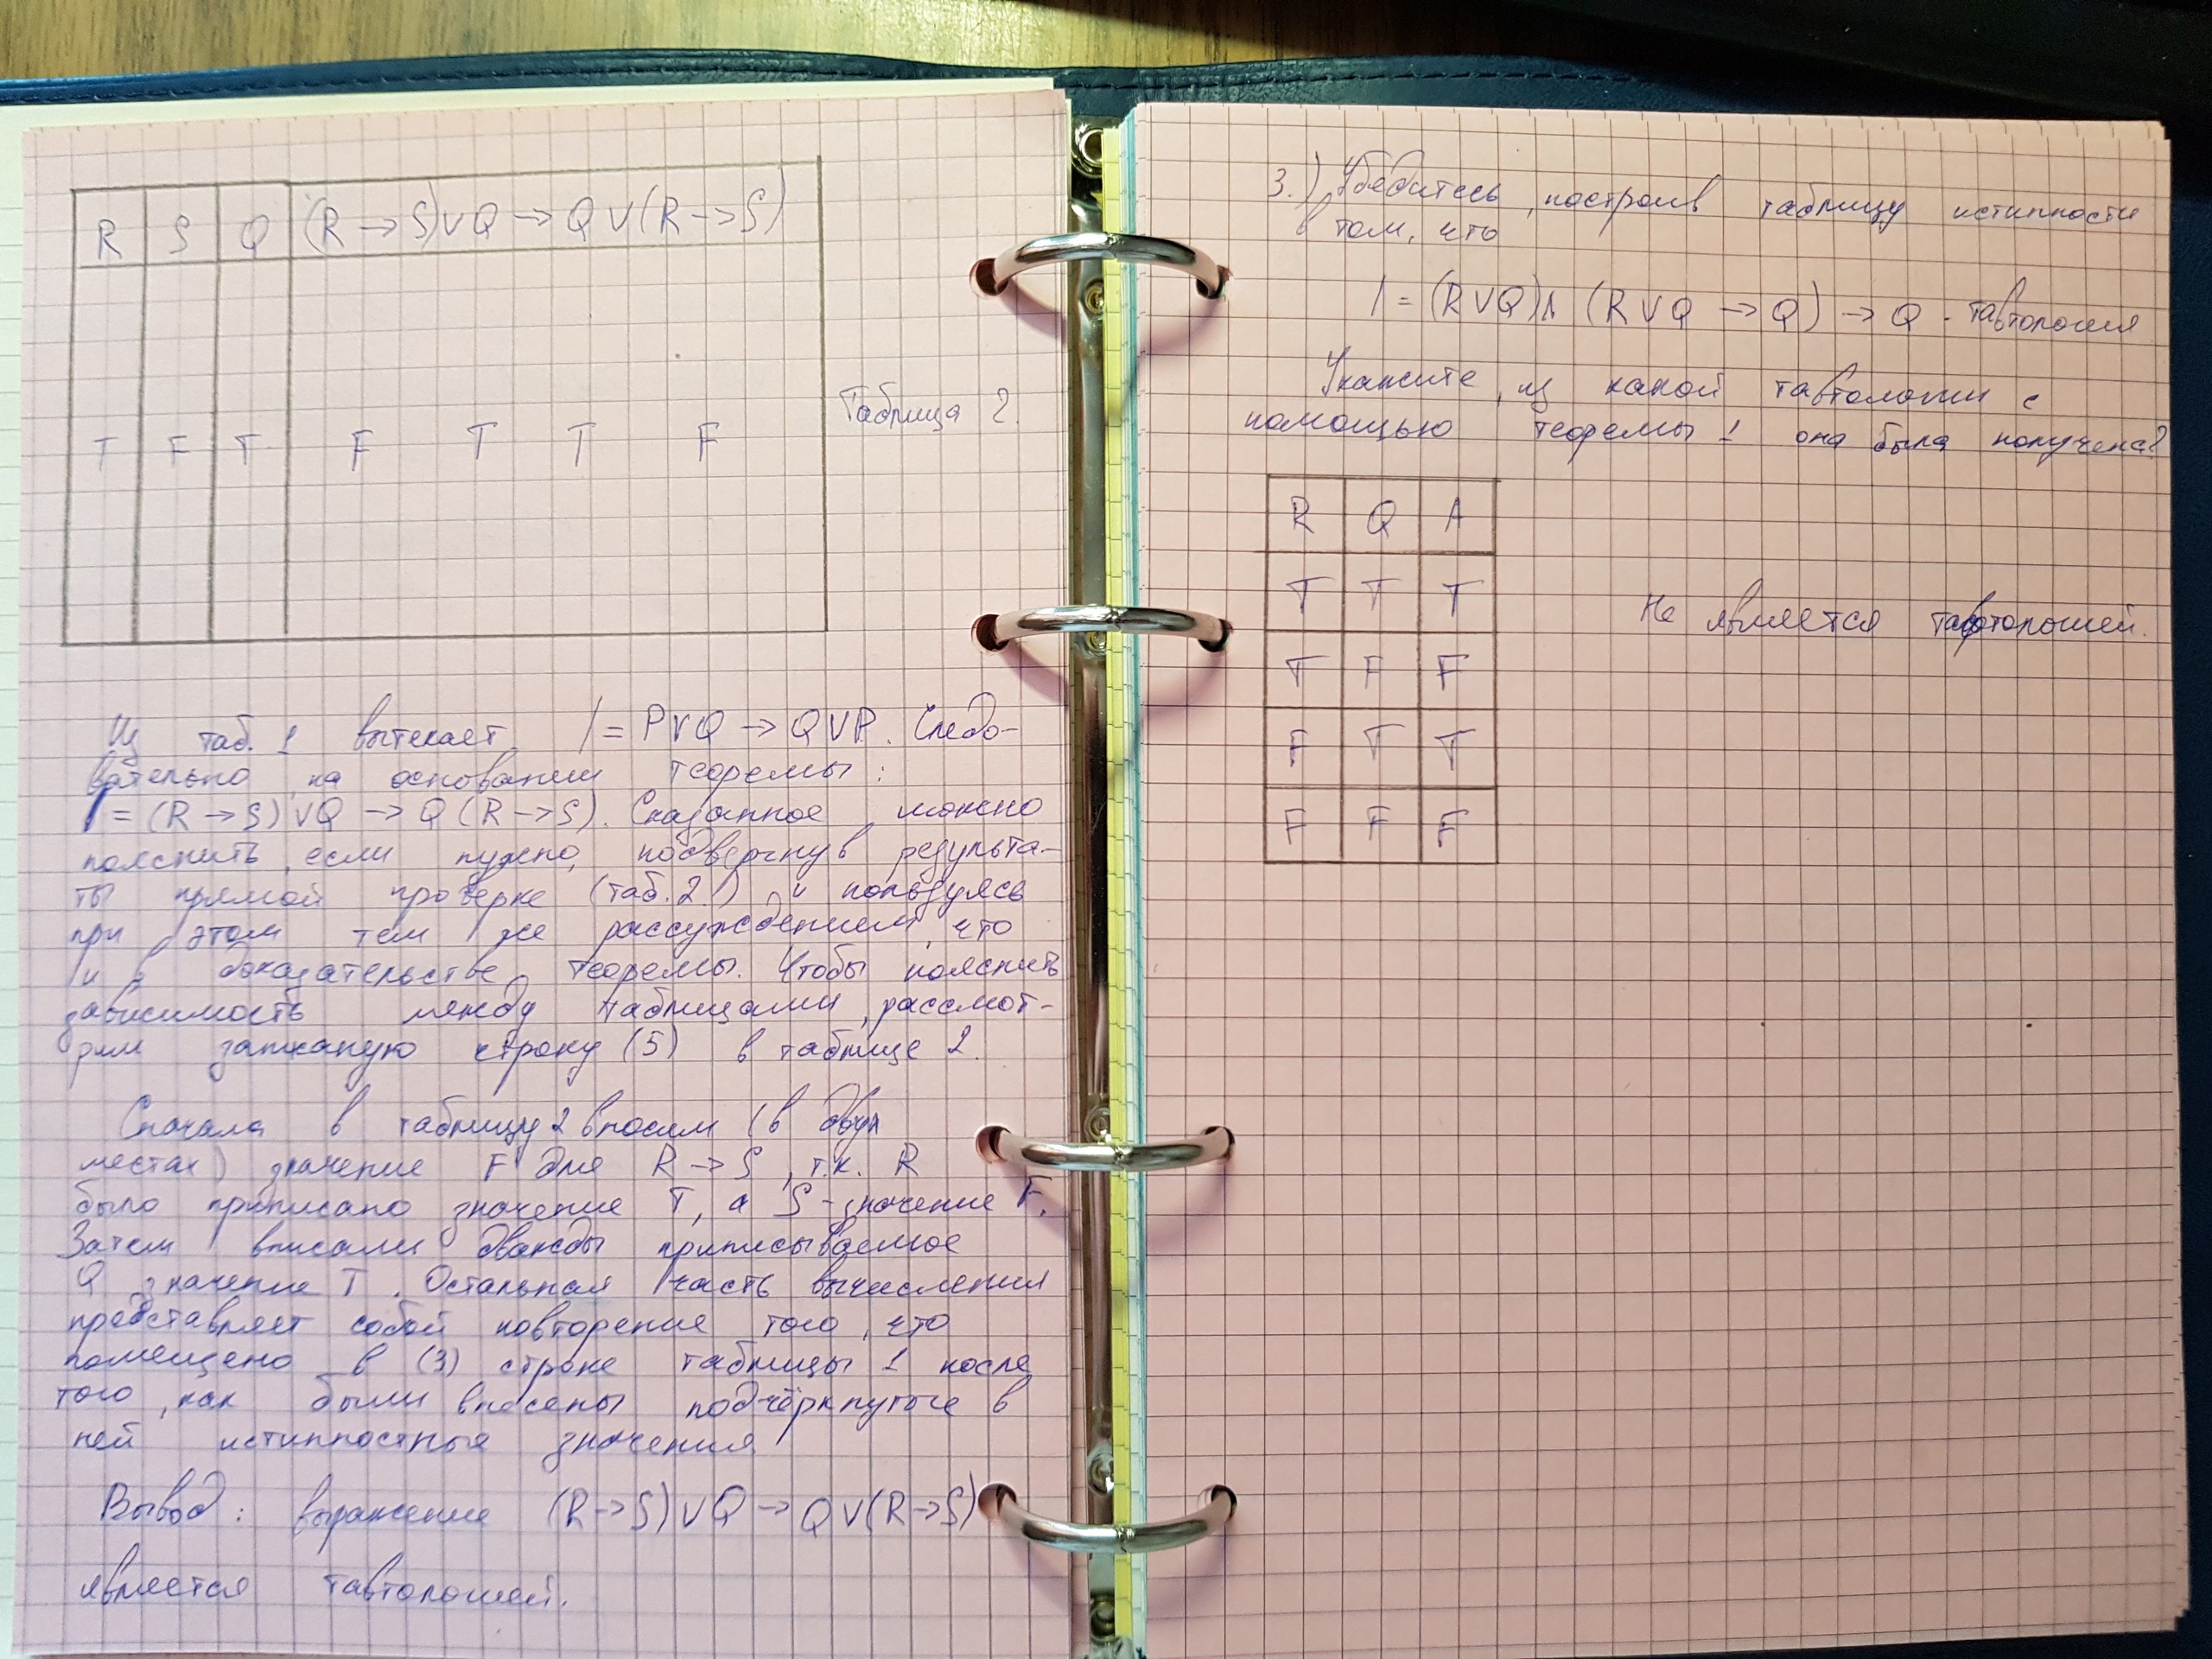 R S Q (R → S) ∨ Q → Q ∨ (R → S)
T F T F T T F
Таблица 2.
Из таб. 1 вытекает |= P ∨ Q → Q ∨ P. Следо-
вательно, на основании теоремы:
|= (R → S) ∨ Q → Q (R → S). Сказанное можно
пояснить, если нужно, подвергнув результа-
ты прямой проверке (таб. 2.) и пользуясь
при этом тем же рассуждением, что
и в доказательстве теоремы. Чтобы пояснить
зависимость между таблицами, рассмот-
рим строку (5) в таблице 2.
Сначала в таблицу 2 вносим (в двух
местах) значение F для R → S, т.к. R
было приписано значение T, а S - значение F.
Затем вписали дважды приписываемое
Q значение T. Остальная часть вычисления
представляет собой повторение того, что
помещено в (3) строке таблицы 1 после
того, как были внесены подчёркнутые в
ней истинностные значения
Вывод: выражение (R → S) ∨ Q → Q ∨ (R → S)
является тавтологией.
3.) Убедитесь, построив таблицу истинности
в том, что
|= (R ∨ Q) ∧ (R ∨ Q → Q) → Q - тавтология
Укажите, из какой тавтологии с
помощью теоремы 1 она была получена?
R Q A
T T T
T F F
F T T
F F F
Не является тавтологией.